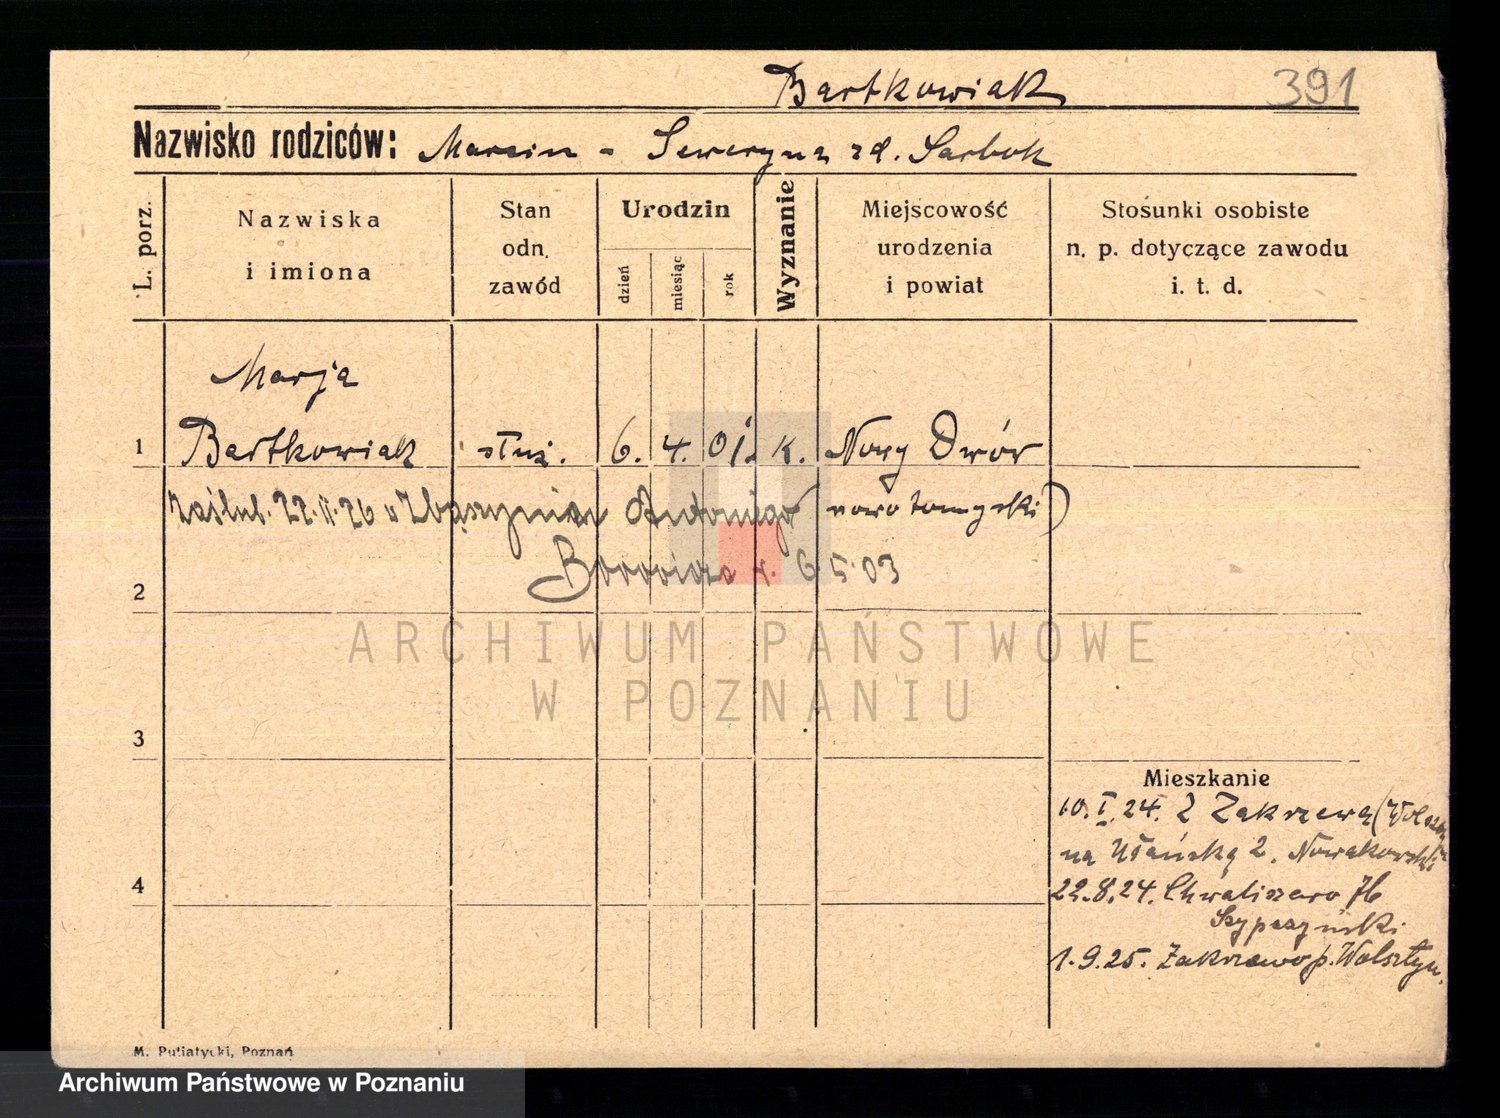 Bartkowiak 391
Nazwisko rodziców: Marcin - Seweryna zd. Sarbok
L. porz.
Nazwiska
i imiona
Stan
odn.
zawód
Urodzin
dzień
miesiąc
rok
Wyznanie
Miejscowość
urodzenia
i powiat
Stosunki osobiste
n. p. dotyczące zawodu
i. t. d.
Marja
1 Bartkowiak służ. 6. 4. 01. k. Nowy Dwór
zaślub. 22.II.26 w Zbąszyniu Antoniego (nowotomyski)
2 6.5.03
ARCHIWUM PAŃSTWOWE
W POZNANIU
3
4
Mieszkanie
10.I.24. Z Zakrzewa (Wolsztyn
na Ułańską 2. Nowakowski
22.8.24. Chwaliszewo 76
Szypszyński
1.9.25. Zakrzewo p. Wolsztyn.
M. Putiatycki, Poznań
Archiwum Państwowe w Poznaniu